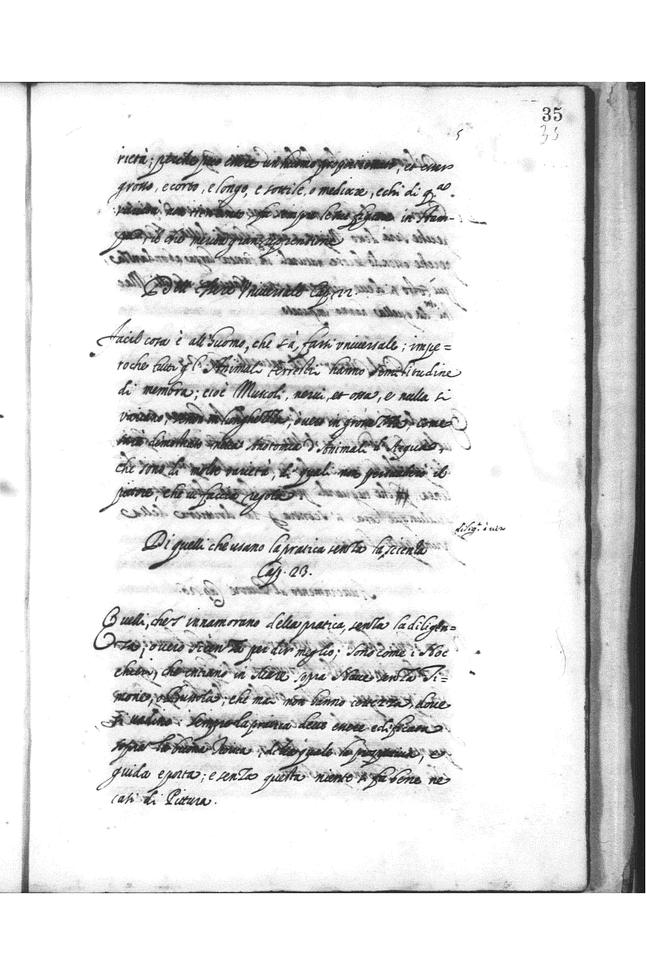 35
35
5
rietà; perche puo essere un huomo proportionato, et esser
grosso, e corto, e longo, e sottile, o mediocre, e chi di q.sta
varietà non tien conto, fa sempre le sue figure in stam-
pa, il che merita gran riprensione
Dell' essere Vniversale Cap. 22.
Facil cosa è all'huomo, che sà, farsi vniversale; impe=
roche tutti gl'Animali terrestri hanno similitudine
di membra; cioè Muscoli, nervi, et ossa, e nulla si
variano, se non in longhezza, ò vero in grossezza, come
sarà dimostrato nella Anotomia d'Animali d'Acqua,
che sono di molte varietà, di quali non persuaderò il
pittore, che vi faccia regola
diligẽ. ò ver
Di quelli che usano la pratica senza la scienza
Cap. 23.
Quelli, che s'innamorano della pratica, senza la diligen=
za; ò vero scienza per dir meglio; sono come i Noc
chieri, che entrano in Mare sopra Nave senza Ti=
mone, ò Bussola; che mai non hanno certezza dove
si vadino: sempre la pratica deve essere edificata
sopra la buona Teorica; della quale la prospettiva, e
guida e porta; e senza questa niente si fa bene ne
casi di Pittura.